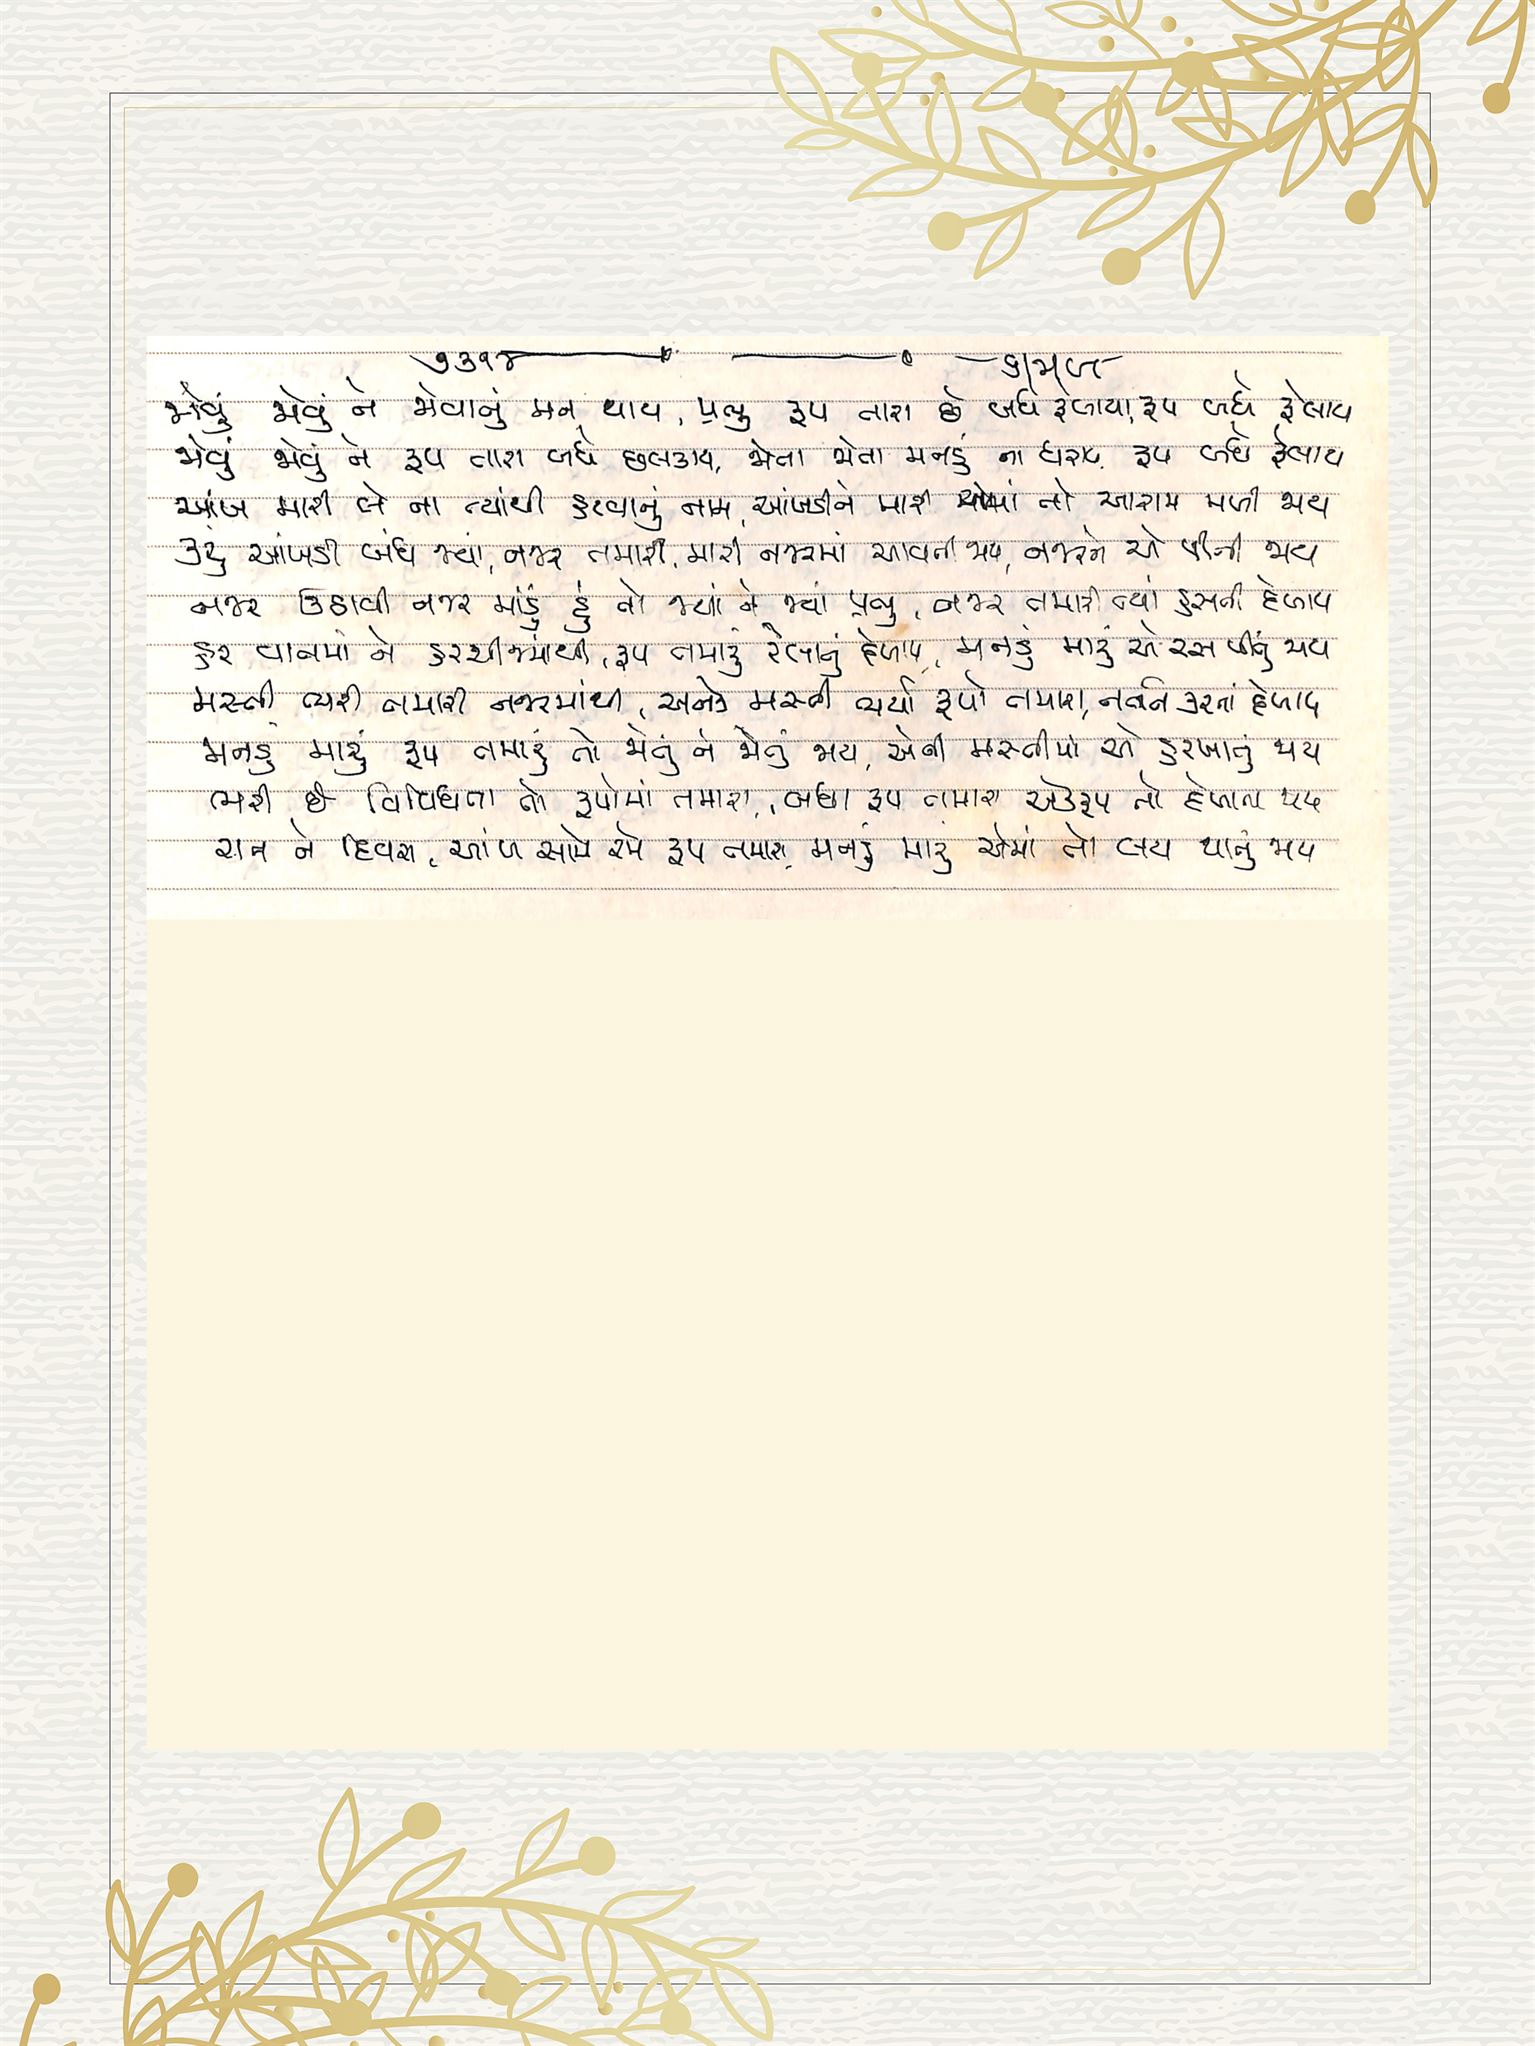 ૭૩૧૪
જોવું જોવું ને જોવાનું મન થાય, પ્રભુ રૂપ તારા છે બધે ફેલાયા, રૂપ બધે ફેલાય
જોવું જોવું ને રૂપ તારા બધે છલકાય, જોતા જોતા મનડું ના ધરાય, રૂપ બધે ફેલાય
આંખ મારી લે ના ત્યાંથી હટવાનું નામ, આંખડીને મારી એમાં તો આરામ મળી જાય
કરું આંખડી બંધ જ્યાં, નજર તમારી, મારી નજરમાં આવતી જાય, નજરને એ પીતી જાય
નજર ઉઠાવી નજર માંડું હું તો જ્યાં ને જ્યાં પ્રભુ, નજર તમારી ત્યાં હસતી દેખાય
હર વાતમાં ને હરચીજમાંથી, રૂપ તમારું રેલાતું દેખાય, મનડું મારું એ રસ પીતું જાય
મસ્તી ભરી તમારી નજરમાંથી, અનેક મસ્તી ભર્યા રૂપો તમારા, નર્તન કરતાં દેખાય
મનડું મારું રૂપ તમારું તો જોતું ને જોતું જાય, એની મસ્તીમાં એ હરખાતું જાય
ભરી છે વિવિધતા તો રૂપોમાં તમારા, બધા રૂપ તમારા એકરૂપ તો દેખાતા જાય
રાત ને દિવસ, આંખ સામે રમે રૂપ તમારા, મનડું મારું એમાં તો લય થાતું જાય